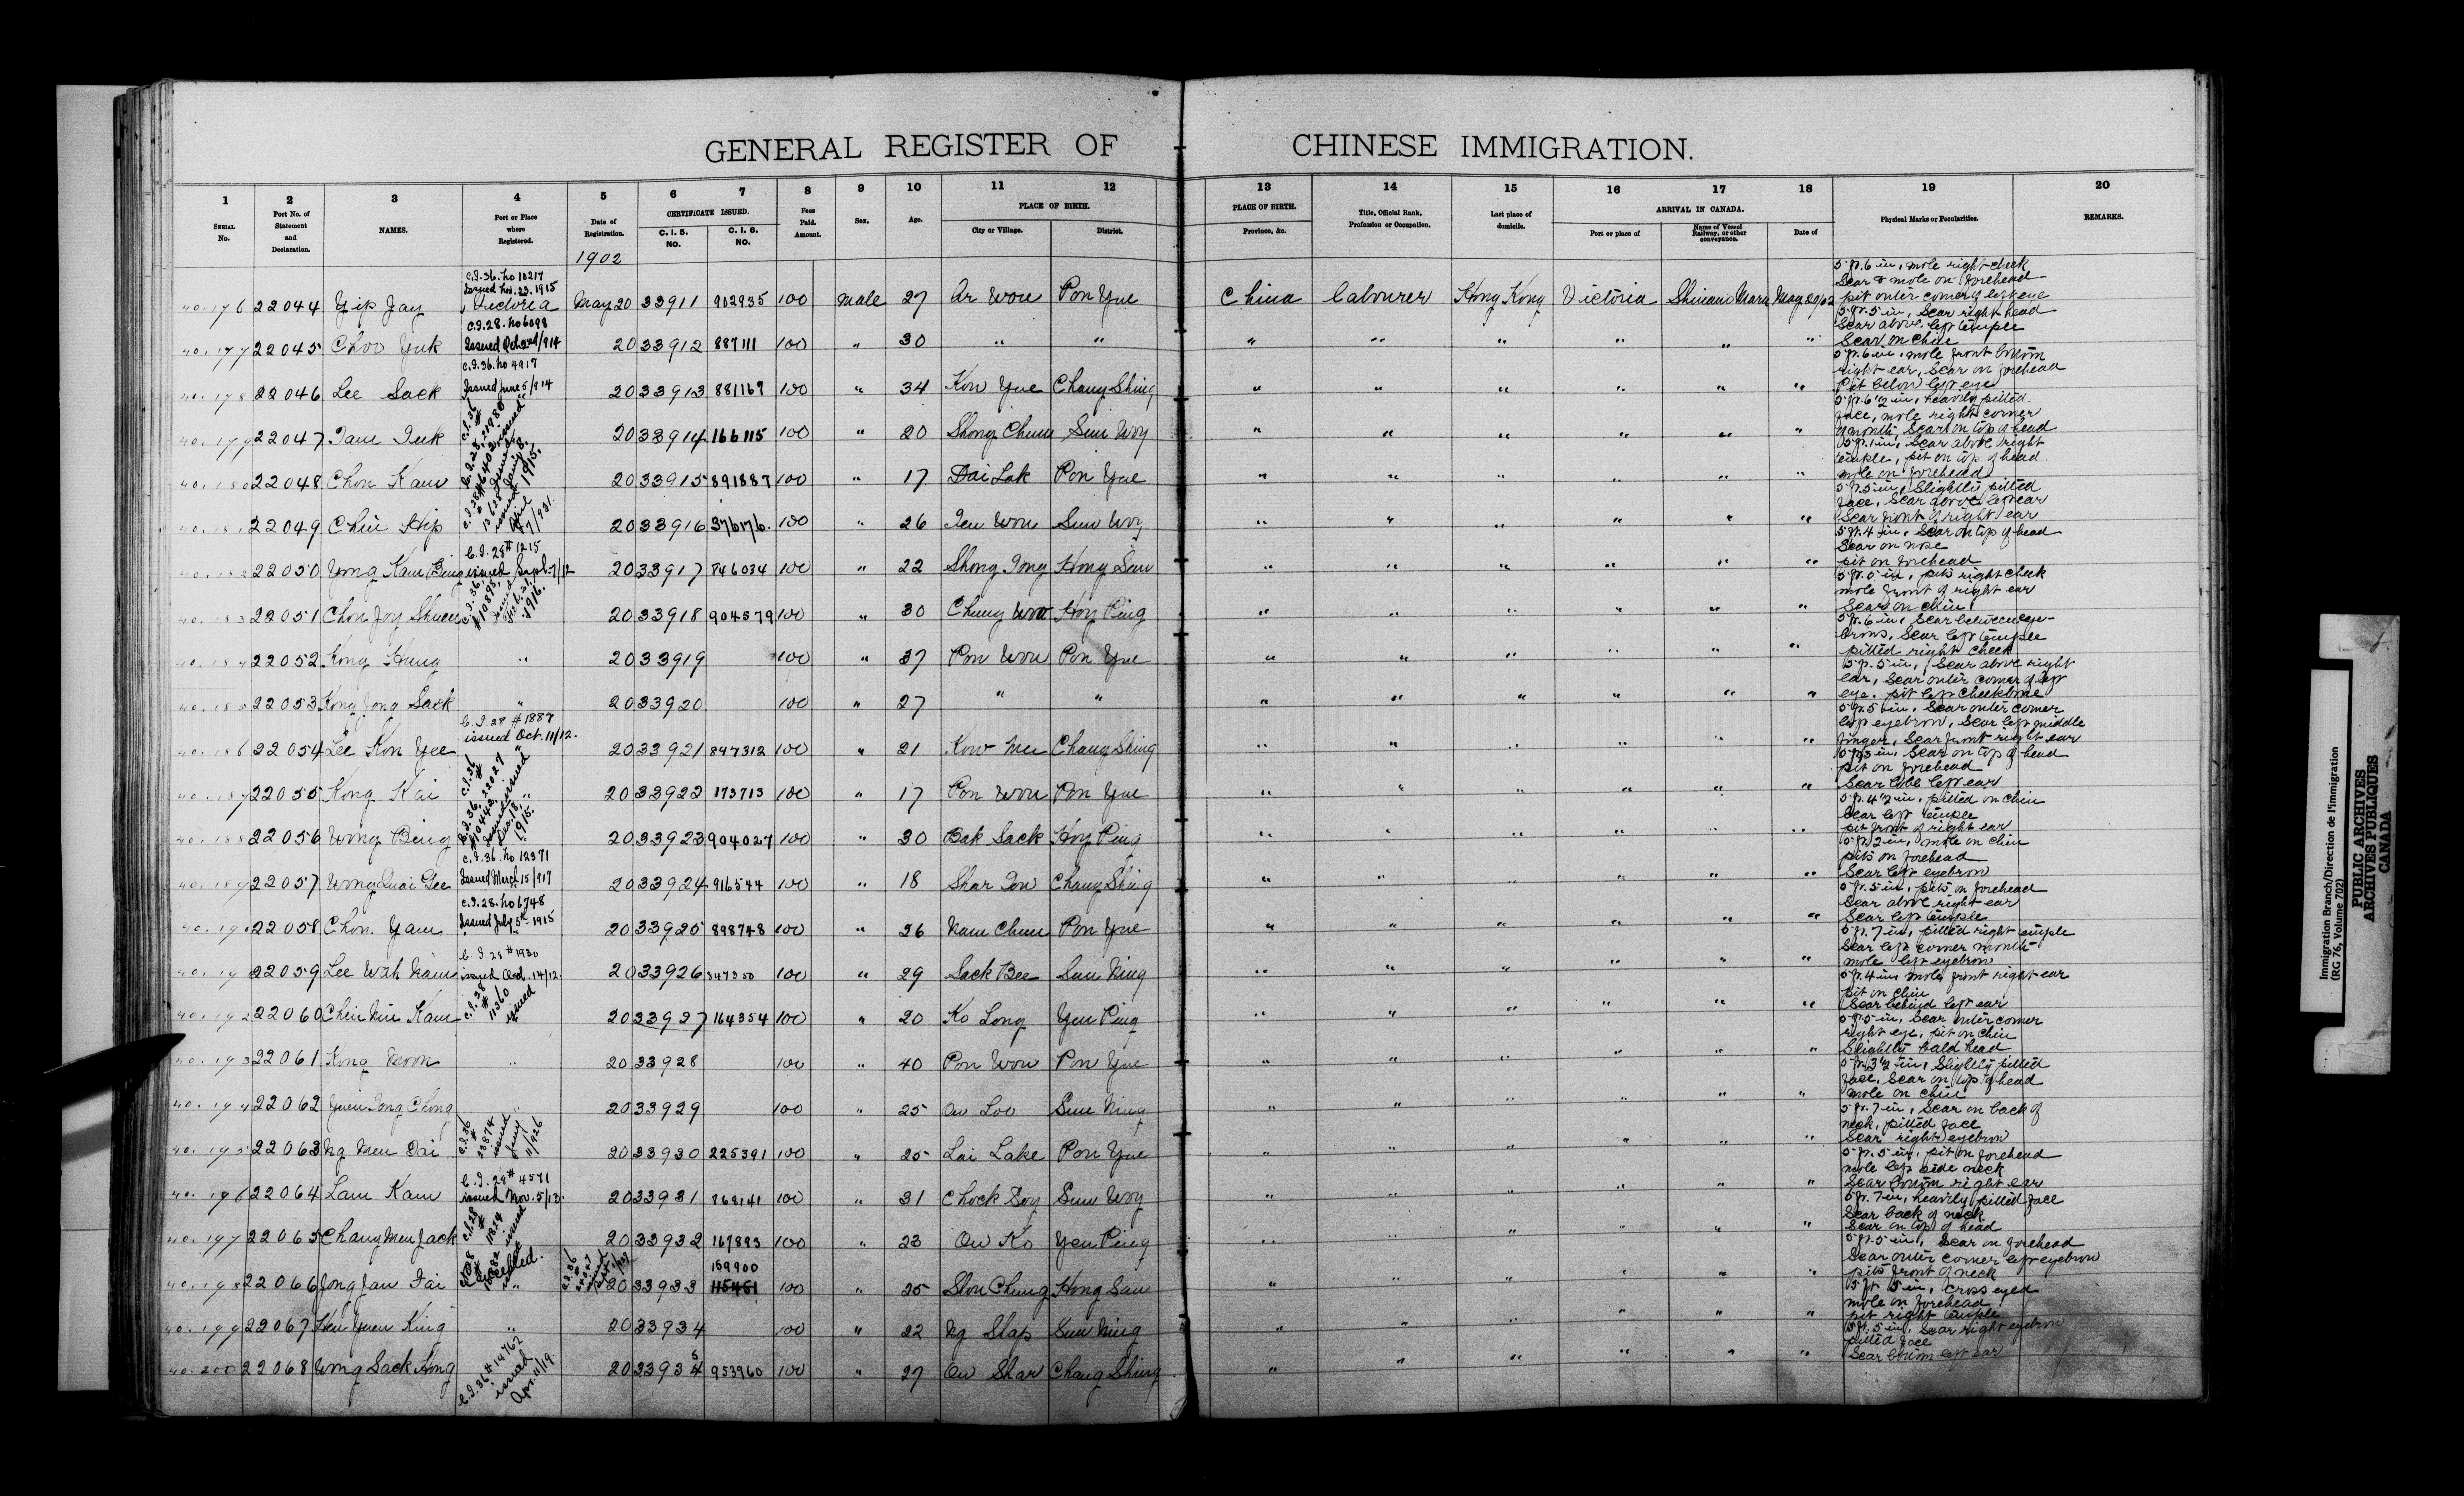 GENERAL REGISTER OF CHINESE IMMIGRATION.
1 2 3 4 5 6 7 8 9 10 11 12 13 14 15 16 17 18 19 20
SERIAL No. Port No. of Statement and Declaration. NAMES. Port or Place where Registered. Date of Registration. CERTIFICATE ISSUED. C. I. 5. NO. C. I. 6. NO. Fees Paid. Amount. Sex. Age. PLACE OF BIRTH. City or Village. District. PLACE OF BIRTH. Province, &c. Title, Official Rank, Profession or Occupation. Last place of domicile. ARRIVAL IN CANADA. Port or place of Name of Vessel Railway, or other conveyance. Date of Physical Marks or Peculiarities. REMARKS.
1902
C.I.36. No 10217
Issued Nov. 23. 1915
40.176 22044 Yip Jay Victoria May 20 33911 902935 100 Male 27 Ar Wou Pon Yue China Labourer Hong Kong Victoria Shinano Maru May 20/02 5 ft. 6 in, mole right cheek
Scar & mole on forehead
pit outer corner of left eye
C.I.28. No 6098
Issued Oct 2nd/914
40.177 22045 Choo Yuk 20 33912 887111 100 " 30 " " " " " " " " 5 ft. 5 in, Scar right head
Scar above left temple
Scar on chin
C.I.36. No 4917
Issued June 5/914
40.178 22046 Lee Sack 20 33913 881167 100 " 34 Kon Yue Chang Shing " " " " " " 5 ft. 6 in, mole front bottom
right ear, Scar on forehead
Pit below left eye
40.179 22047 Tam Tuk 20 33914 166115 100 " 20 Shong Chung Sun Woy " " " " " " 5 ft. 6 1/2 in, heavily pitted
face, mole right corner
of mouth, Scar on top of head
40.180 22048 Chon Kam 20 33915 891887 100 " 17 Dai Lak Pon Yue " " " " " " 5 ft. 1 in, Scar above right
temple, pit on top of head
mole on forehead
40.181 22049 Chin Hip 20 33916 376176. 100 " 26 Ten Wou Sun Woy " " " " " " 5 ft. 5 in, Slightly pitted
face, Scar above left ear
Scar front of right ear
C.I.28 # 1215
issued Sept. 7/12
40.182 22050 Wong Kam Bing 20 33917 846034 100 " 22 Shong Tong Hong San " " " " " " 5 ft. 4 in, Scar on top of head
Scar on nose
pit on forehead
C.I.36. # 10895 issued Feb. 21. 1916.
40.183 22051 Chon Joy Shuen 20 33918 904579 100 " 30 Chung Woo Hoy Ping " " " " " " 5 ft. 5 in, pits right cheek
mole front of right ear
Scar on chin
40.184 22052 Kong Hung " 20 33919 100 " 37 Pon Wou Pon Yue " " " " " " 5 ft. 6 in, Scar between eye-
brows, Scar left temple
pitted right cheek
40.185 22053 Kong Jong Sack " 20 33920 100 " 27 " " " " " " " " 5 ft. 5 in, Scar above right
ear, Scar outer corner of left
eye. pit left cheekbone
C.I. 28 # 1887
issued Oct. 11/12.
40.186 22054 Lee Kon Yee " 20 33921 847312 100 " 21 Kow Mee Chang Shing " " " " " " 5 ft. 5 in, Scar outer corner
left eyebrow, Scar left middle
finger, Scar front right ear
40.187 22055 Kong Kai " 20 33922 173713 100 " 17 Pon Wou Pon Yue " " " " " " 5 ft. 3 in, Scar on top of head
pit on forehead
Scar lobe left ear
40.188 22056 Wong Bing 20 33923 904027 100 " 30 Bak Sack Hoy Ping " " " " " " 5 ft. 4 1/2 in, pitted on chin
Scar left temple
pit front of right ear
C.I.36. No 12371
Issued March 15/917
40.189 22057 Wong Quai Gee 20 33924 916544 100 " 18 Shar Tow Chang Shing " " " " " " 5 ft. 2 in, mole on chin
pits on forehead
Scar left eyebrow
C.I.28. No 6748
Issued July 5th 1915
40.190 22058 Chon Yam 20 33925 898748 100 " 26 Nam Chun Pon Yue " " " " " " 5 ft. 5 in, pits on forehead
Scar above right ear
Scar left temple
C.I. 28 # 1930
issued Oct. 14/12.
40.191 22059 Lee Wah Nam 20 33926 847350 100 " 29 Sack Bee Sun Ning " " " " " " 5 ft. 7 in, pitted right temple
Scar left corner mouth
mole left eyebrow
C.I. 28 # 11360 issued
40.192 22060 Chin Nin Kam " 20 33927 164354 100 " 20 Ko Long Yen Ping " " " " " " 5 ft. 4 in, mole front right ear
pit on chin
Scar behind left ear
40.193 22061 Kong Neron " 20 33928 100 " 40 Pon Wou Pon Yue " " " " " " 5 ft. 5 in, Scar outer corner
right eye, pit on chin
Slightly bald head
40.194 22062 Yuen Tong Chong " 20 33929 100 " 25 Ow Loo Sun Ning " " " " " " 5 ft. 3 1/2 in, Slightly pitted
face, Scar on top of head
mole on chin
C.I.36 # 23874 issued Jany 11/926
40.195 22063 Ng Men Dai 20 33930 225391 100 " 25 Lai Lake Pon Yue " " " " " " 5 ft. 7 in, Scar on back of
neck, pitted face
Scar right eyebrow
C.I. 28 # 4571
issued Nov. 5/13.
40.196 22064 Lam Kam 20 33931 868141 100 " 31 Chock Soy Sun Woy " " " " " " 5 ft. 5 in, pit on forehead
mole left side neck
Scar bottom right ear
C.I.28 # 11824 issued
40.197 22065 Chang Men Jack 20 33932 167893 100 " 23 Ow Ko Yen Ping " " " " " " 5 ft. 7 in, heavily pitted face
Scar back of neck
Scar on top of head
Cancelled.
159900
40.198 22066 Jong Jan Tai " 20 33933 115461 100 " 25 Shou Chung Hong San " " " " " " 5 ft. 5 in, Scar on forehead
Scar outer corner left eyebrow
pits front of neck
40.199 22067 Hen Yuen King " 20 33934 100 " 22 Ng Shap Sun Ning " " " " " " 5 ft 5 in, Cross eyed
mole on forehead
pit right temple
40.200 22068 Wong Sack Hong 20 33935 953960 100 " 27 Ow Shar Chang Shing " " " " " " 5 ft. 5 in, Scar right eyebrow
pitted face
Scar bottom left ear
C.I. 36 # 14762
issued
Apr. 11/19.
Immigration Branch/Direction de l'immigration
(RG 76, Volume 702)
PUBLIC ARCHIVES
ARCHIVES PUBLIQUES
CANADA